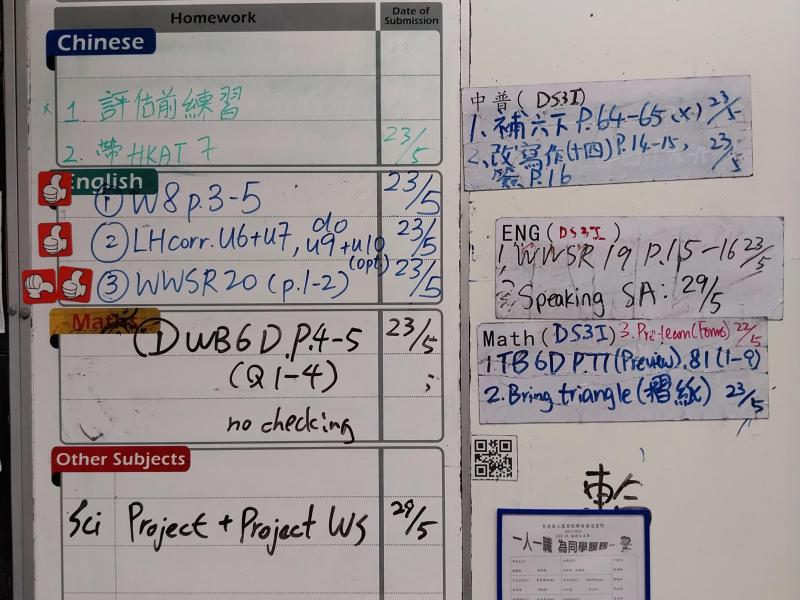 Homework
Date of Submission
Chinese
x 1. 評估前練習
2. 帶HKAT 7 23/5
English
① W8 p.3-5 23/5
② LHcorr. U6+U7, do U9+U10 (opt) 23/5
③ WWSR20 (p.1-2) 23/5
Maths
① WB6D.P.4-5 23/5
(Q1-4) ;
no checking
Other Subjects
Sci Project + Project WS 29/5
中普(DS3I)
1、補六下 P.64-65(x) 23/5
2、改寫作(十四)P.14-15, 23/5
簽P.16
ENG (DS3I)
1, WWSR 19 P.15-16 23/5
② Speaking SA: 29/5
Math (DS3I) 3. Pre-learn (Forms) 22/5
1 TB 6D P.77 (Preview). 81 (1-9)
2. Bring triangle (摺紙) 23/5
一人一職 為同學服務